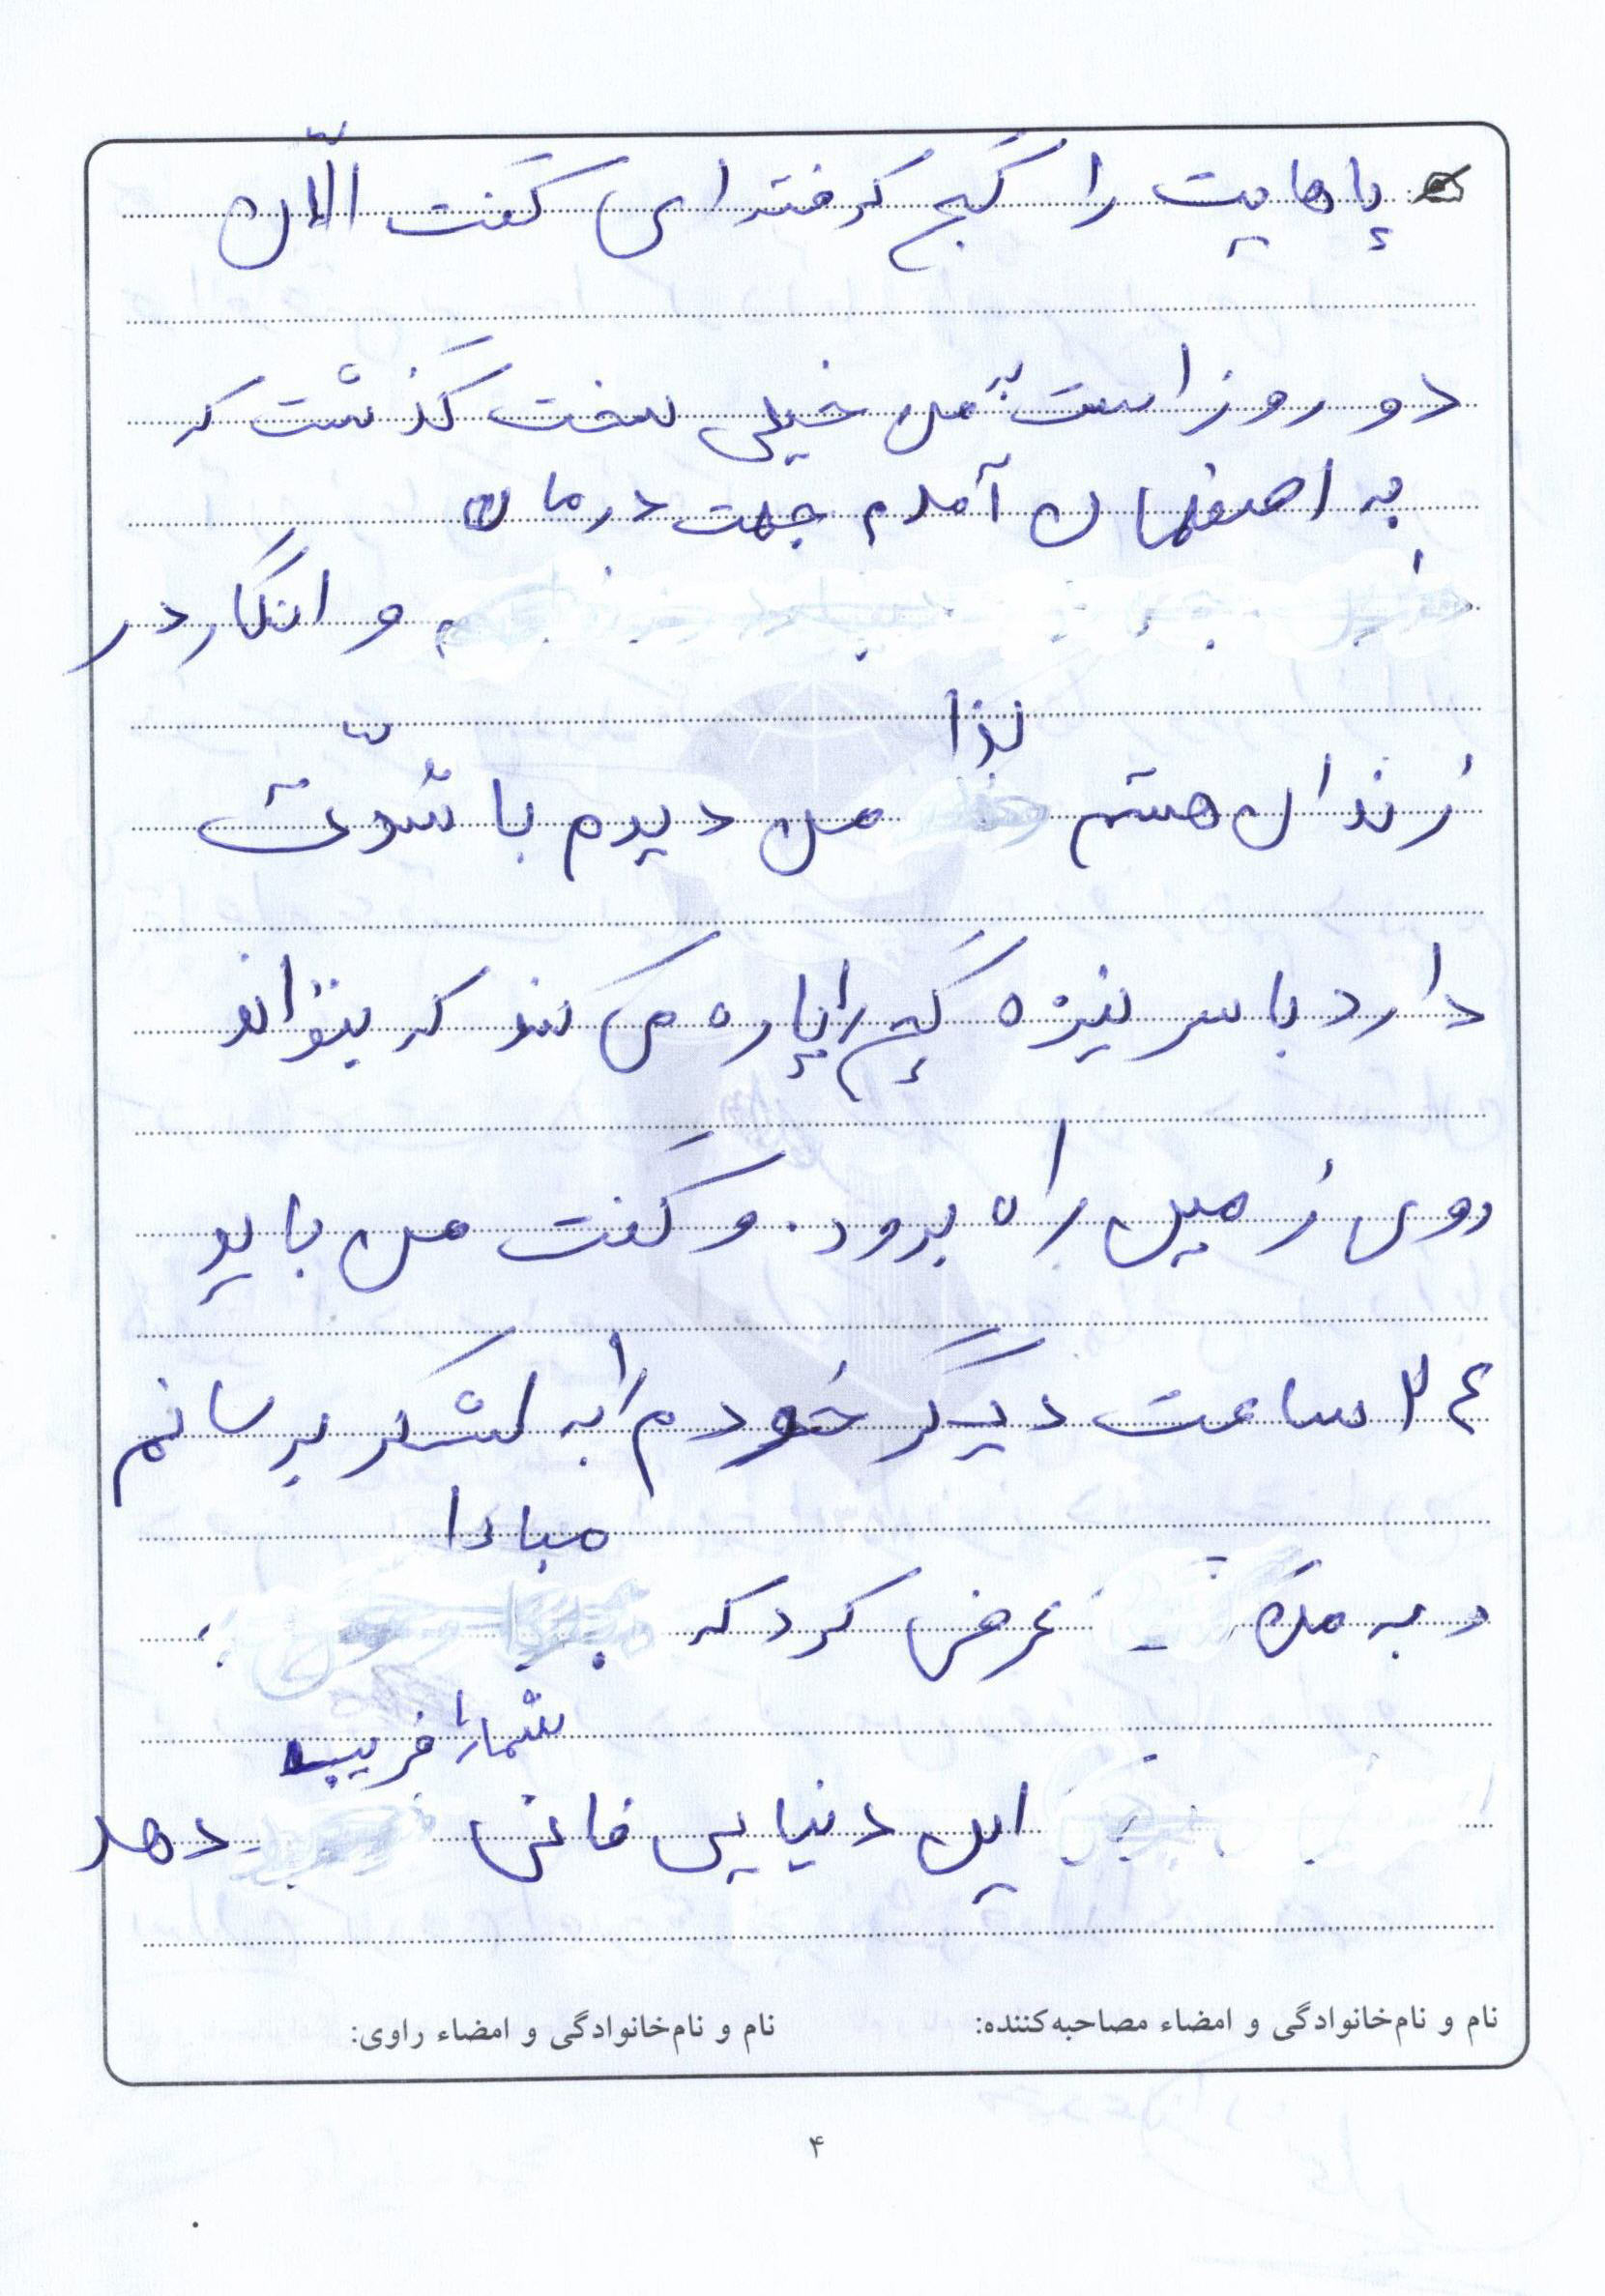 پاهایت را گچ گرفته‌ای گفت الآن
دو روز است به من خیلی سخت گذشت که
به اصفهان آمدم جهت درمان
و انگار در
زندان هستم لذا من دیدم با شدّت
دارد با سر نیزه گچ را پاره می کند که بتواند
روی زمین راه برود. و گفت من باید
۲۴ ساعت دیگر خودم را به لشکر برسانم
و به من عرض کرد که مبادا
این دنیایی فانی شما را فریب دهد
نام و نام‌خانوادگی و امضاء مصاحبه‌کننده:
نام و نام‌خانوادگی و امضاء راوی:
۴